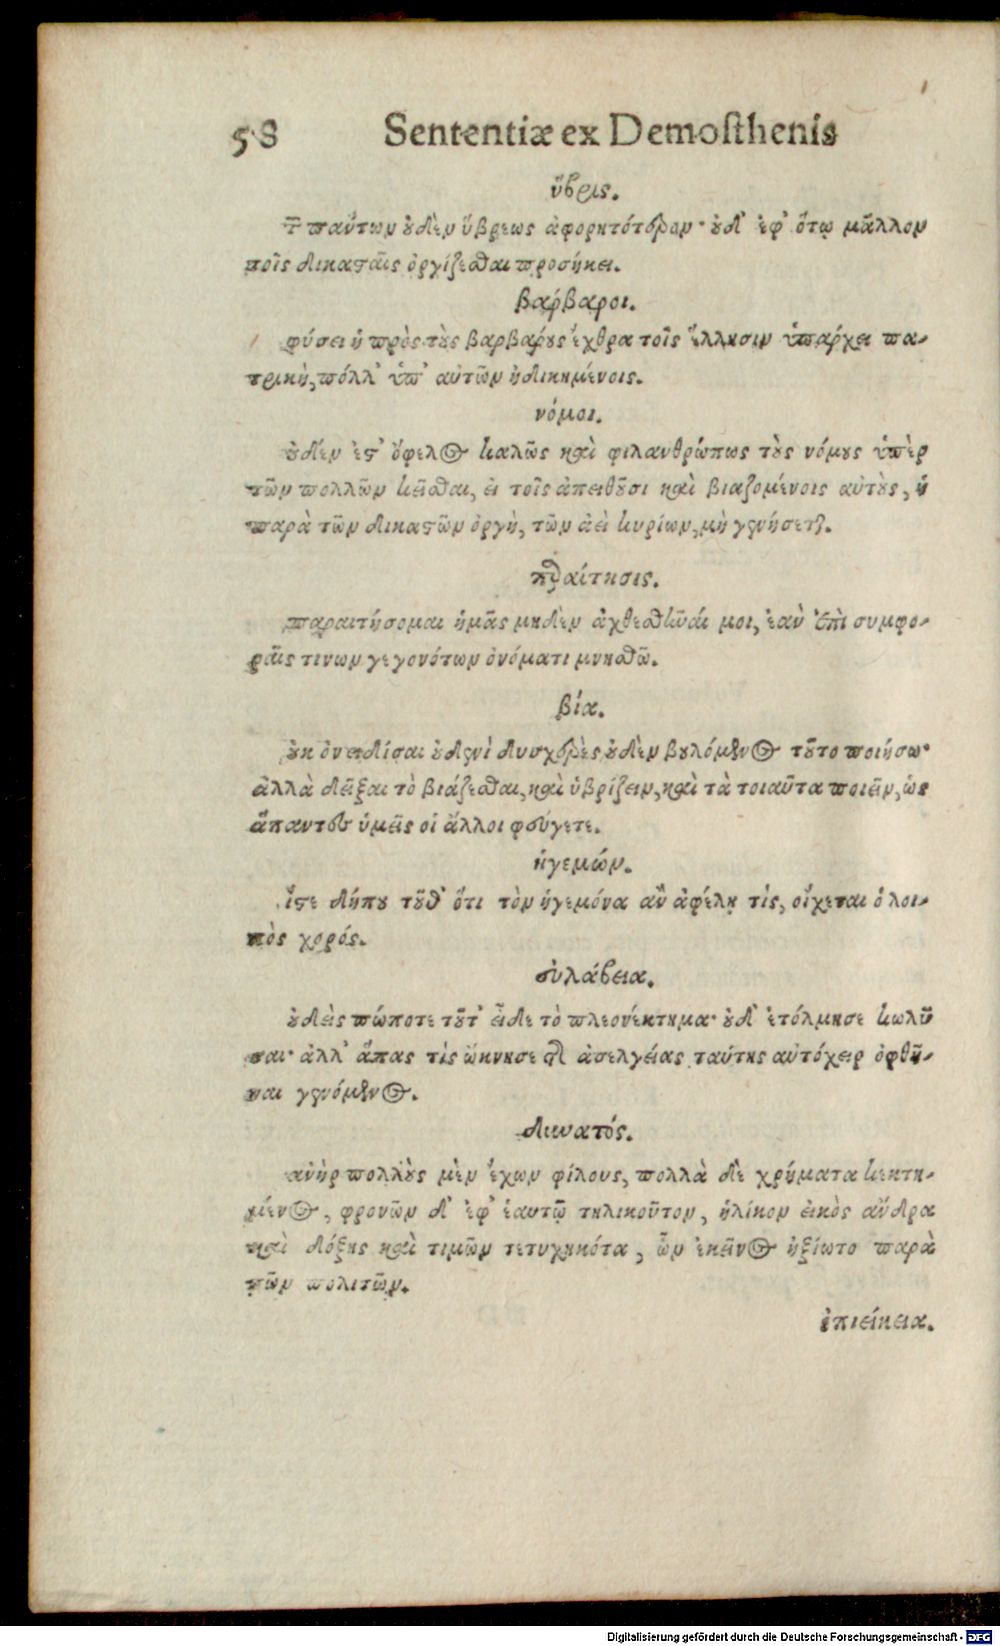 58 Sententiæ ex Demosthenis
ὕβρις.
τ͂ πάντων οὐδὲν ὕβρεως ἀφορητότερον· οὐδ' ἐφ' ὅτῳ μᾶλλον
τοῖς δικασταῖς ὀργίζεσθαι προσήκει.
βάρβαροι.
φύσει ἡ πρὸς τοὺς βαρβάρους ἔχθρα τοῖς ἕλλησιν ὑπάρχει πα-
τρικὴ, πόλλ' ὑπ' αὐτῶν ἠδικημένοις.
νόμοι.
οὐδέν ἐστ' ὄφελος καλῶς καὶ φιλανθρώπως τοὺς νόμους ὑπὲρ
τῶν πολλῶν κεῖσθαι, εἰ τοῖς ἀπειθοῦσι καὶ βιαζομένοις αὐτοὺς, ἡ
παρὰ τῶν δικαστῶν ὀργὴ, τῶν ἀεὶ κυρίων, μὴ γενήσεται.
παραίτησις.
παραιτήσομαι ἡμᾶς μηδὲν ἀχθεσθῆναί μοι, ἐαν ἐπὶ συμφο-
ραῖς τινων γεγονότων ὀνόματι μνησθῶ.
βία.
οὐκ ὀνειδίσαι οὐδενὶ δυσχερὲς οὐδὲν βουλόμενος τοῦτο ποιήσω·
ἀλλὰ δεῖξαι τὸ βιάζεσθαι, καὶ ὑβρίζειν, καὶ τὰ τοιαῦτα ποιεῖν, ὡς
ἅπαντες ὑμεῖς οἱ ἄλλοι φεύγετε.
ἡγεμών.
ἴστε δήπου τοῦθ' ὅτι τὸν ἡγεμόνα ἂν ἀφέλῃ τίς, οἴχεται ὁ λοι-
πὸς χορός.
εὐλάβεια.
οὐδεὶς πώποτε τοῦτ' εἶδε τὸ πλεονέκτημα· οὐδ' ἐτόλμησε κωλῦ
σαι· ἀλλ' ἅπας τὶς ὤκνησε τῆς ἀσελγείας ταύτης αὐτόχειρ ὀφθῆ-
ναι γενόμενος.
δυνατός.
ἀνὴρ πολλοὺς μὲν ἔχων φίλους, πολλὰ δὲ χρήματα κεκτη-
μένος, φρονῶν δ' ἐφ' ἑαυτῷ τηλικοῦτον, ἡλίκον εἰκὸς ἄνδρα
καὶ δόξης καὶ τιμῶν τετυχηκότα, ὧν ἐκεῖνος ἠξίωτο παρὰ
τῶν πολιτῶν.
ἐπιείκεια.
Digitalisierung gefördert durch die Deutsche Forschungsgemeinschaft - DFG